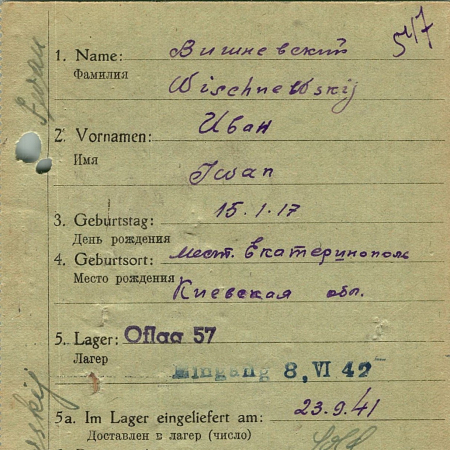 5/7
1. Name: Вишневский
Фамилия
Wischnewskij
2. Vornamen: Иван
Имя
Iwan
3. Geburtstag: 15.1.17
День рождения
4. Geburtsort: мест. Екатеринополь
Место рождения
Киевская обл.
5. Lager: Oflag 57
Лагерь
Eingang 8, VI 42
5a. Im Lager eingeliefert am: 23.9.41
Доставлен в лагерь (число)
Iwan